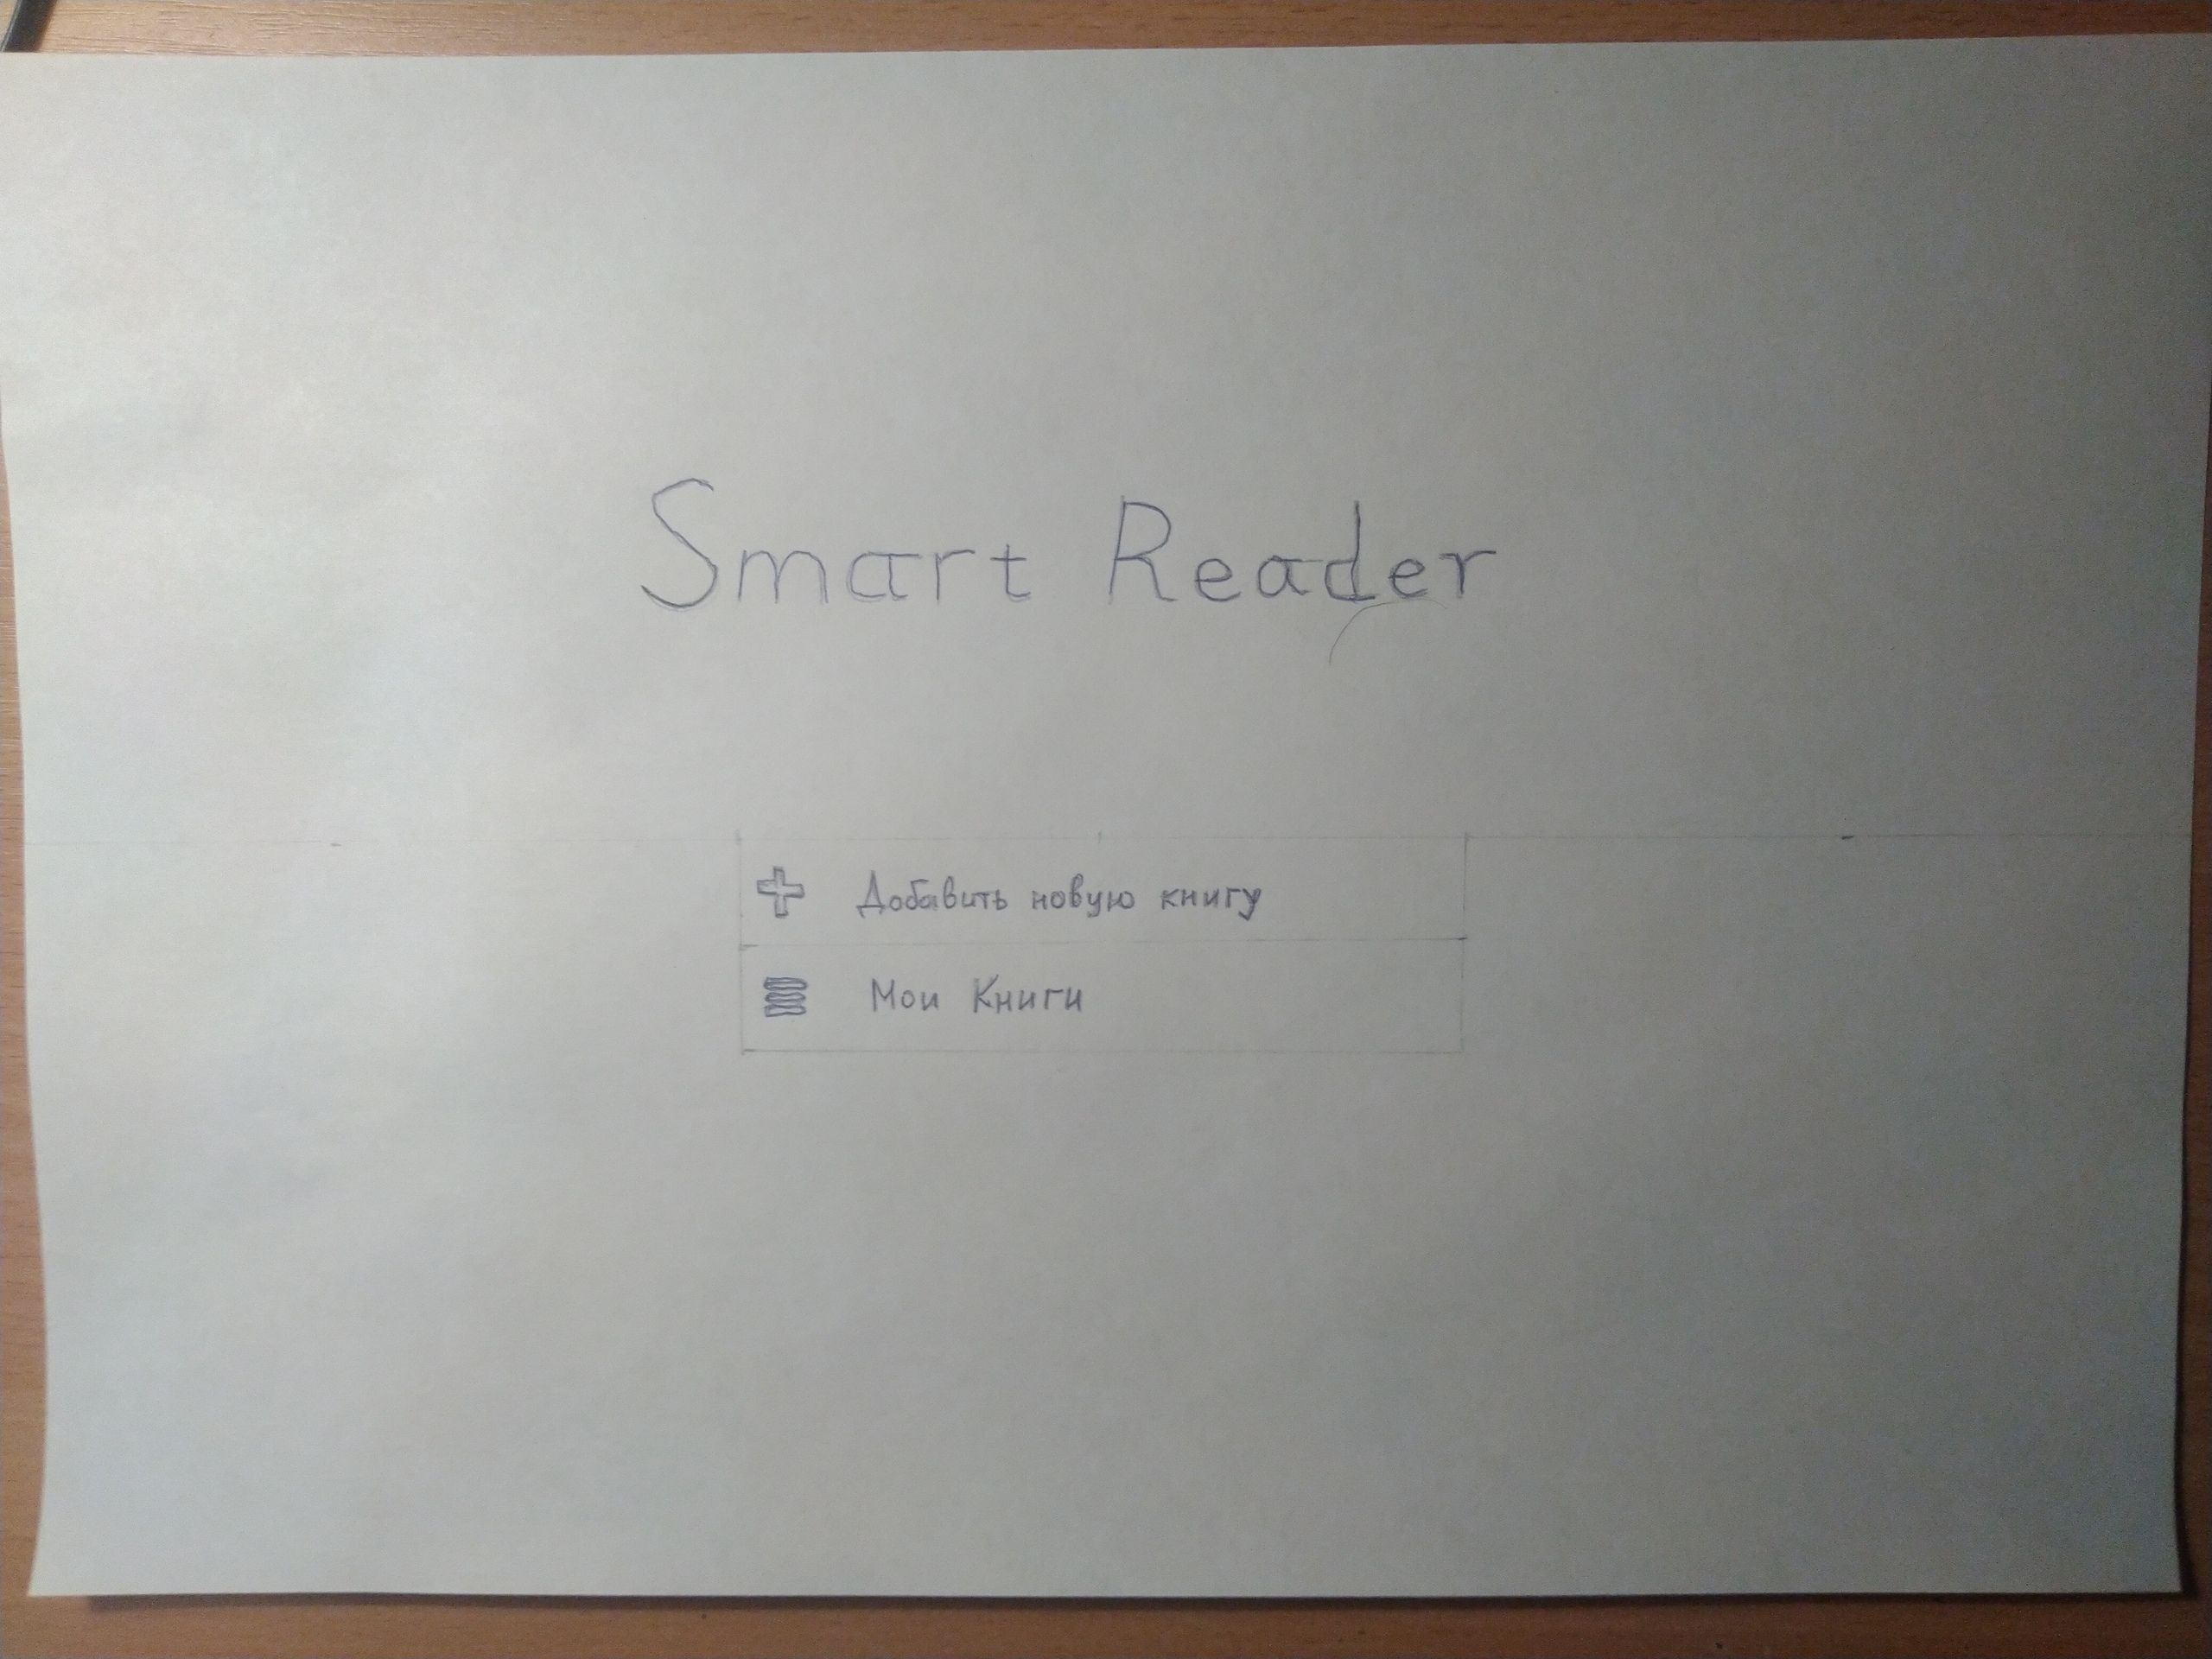 Smart Reader
Добавить новую книгу
Мои Книги